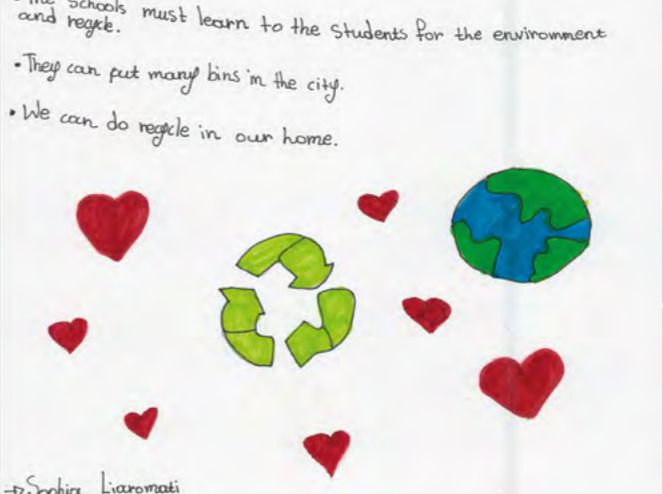 • The Schools must learn to the Students for the environment
and recycle.
• They can put many bins in the city.
• We can do recycle in our home.
→ Sophia Liaromati